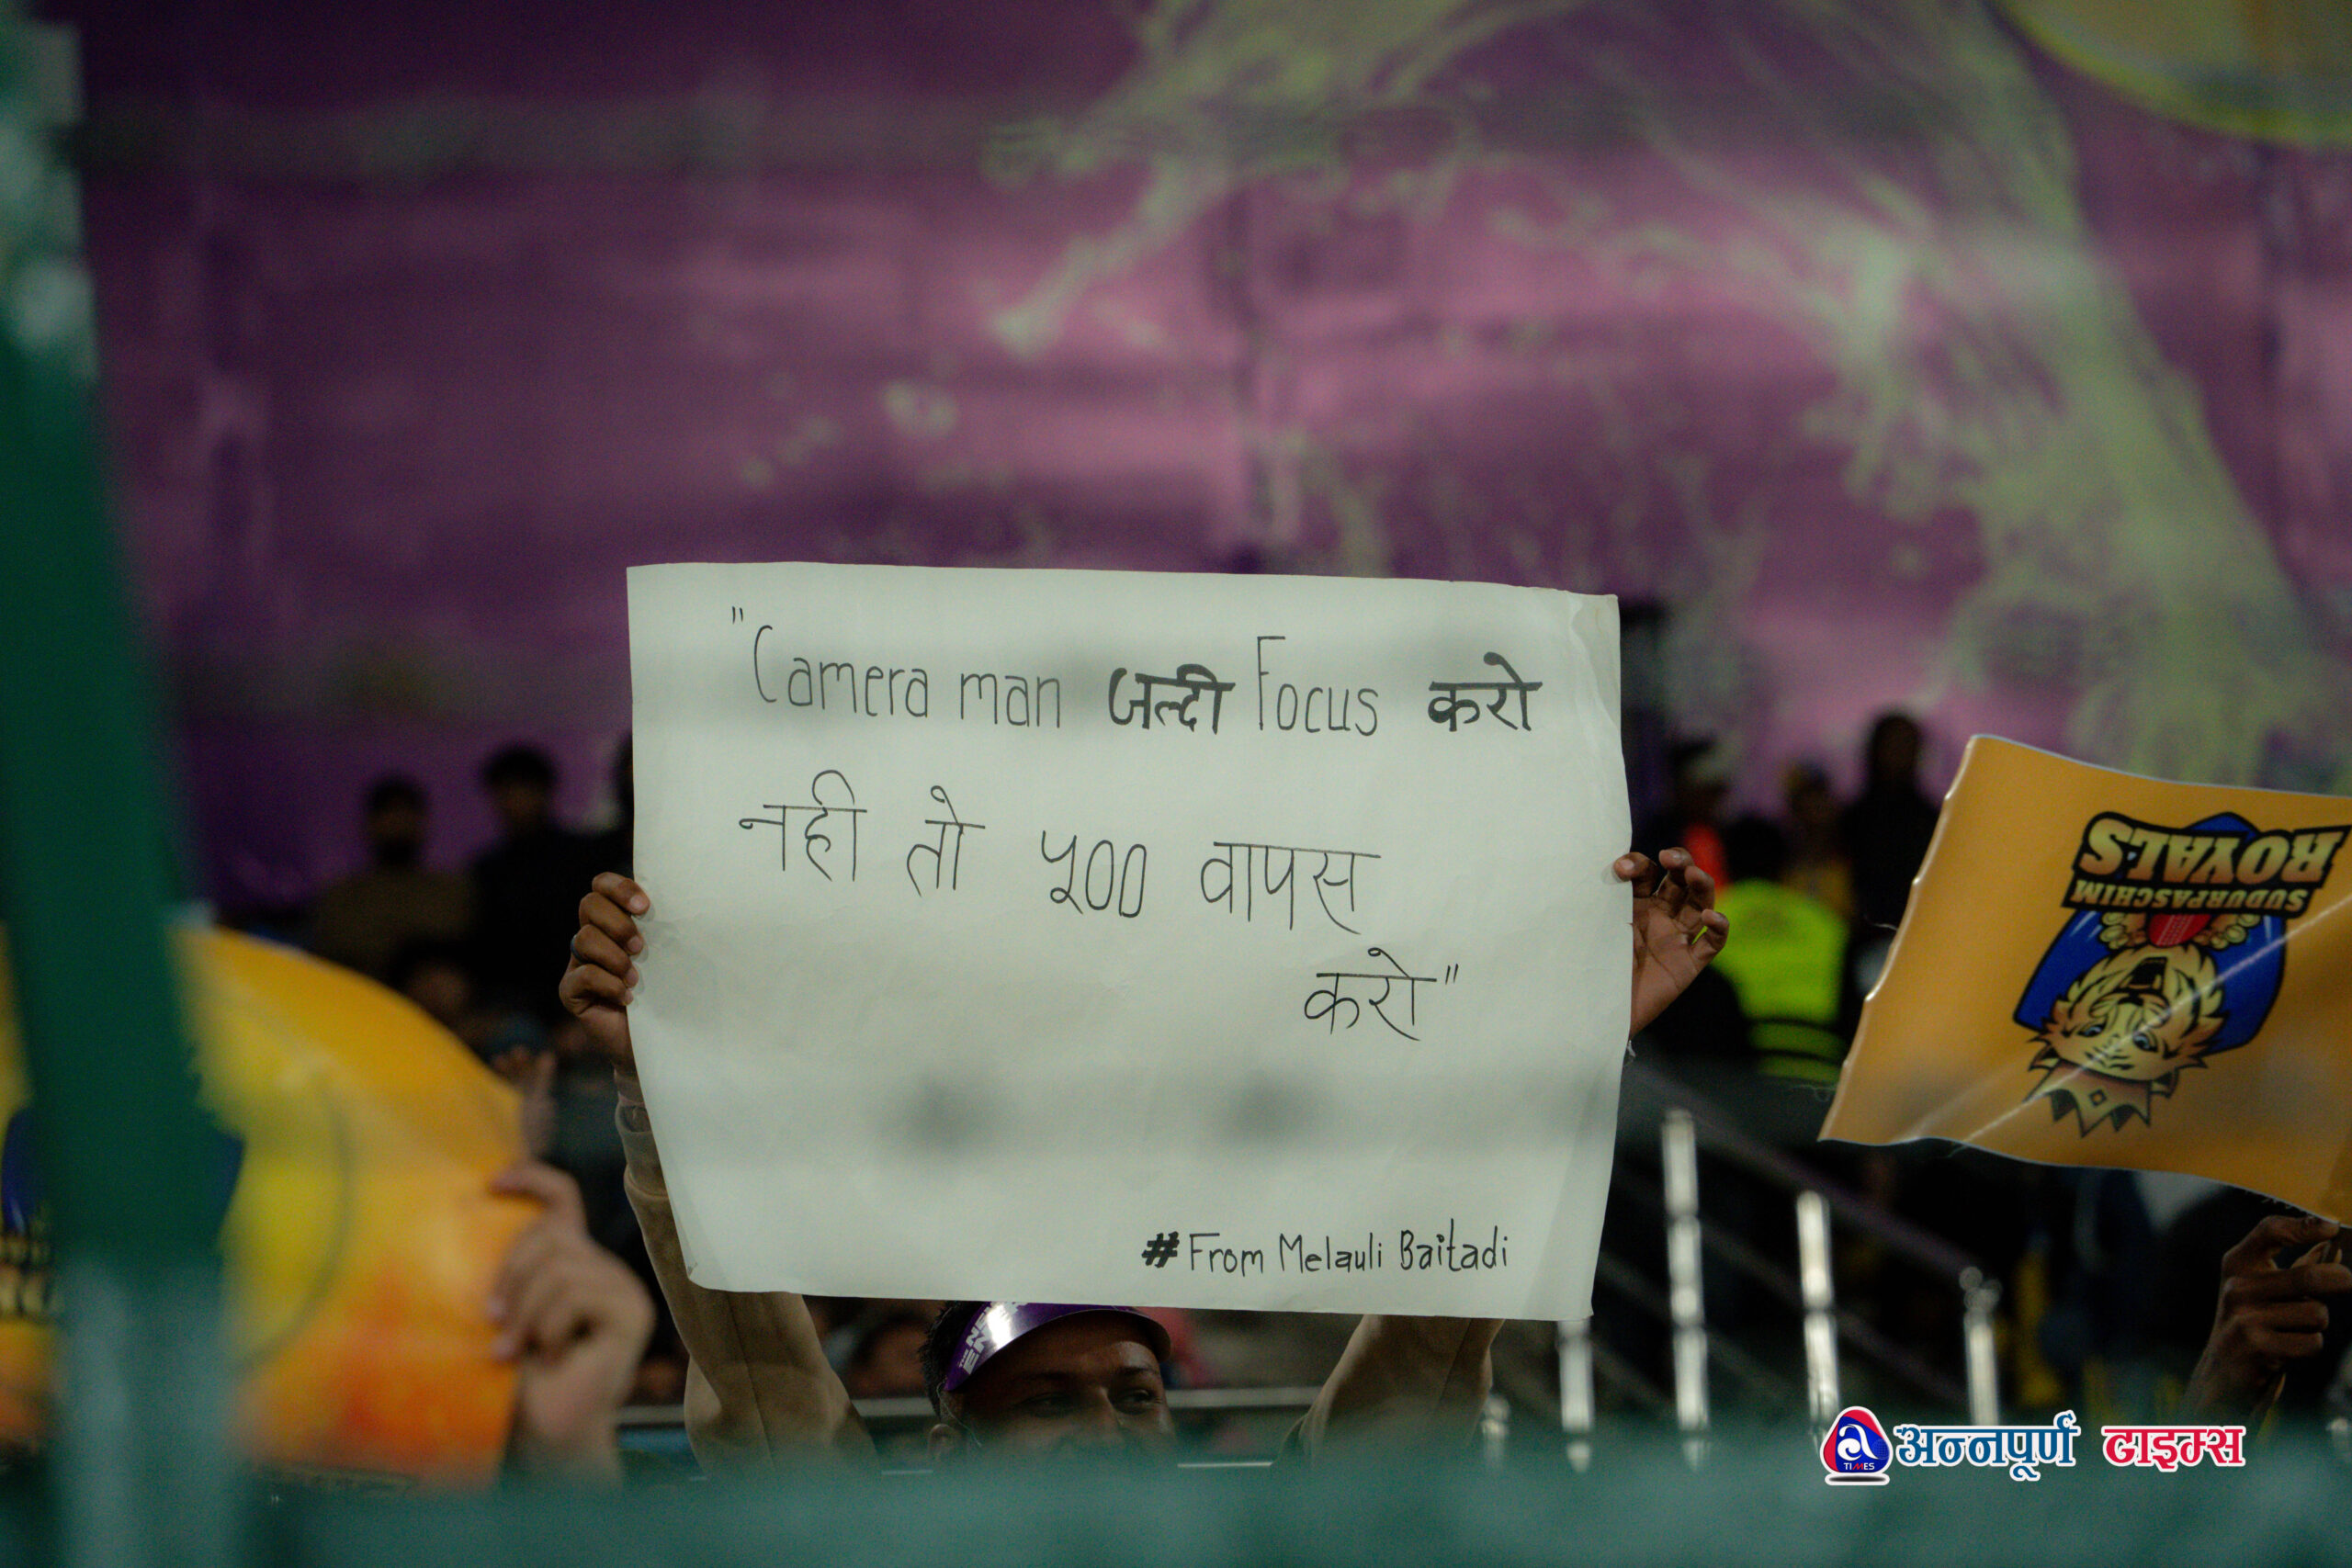 "Camera man जल्दी Focus करो
नही तो ५00 वापस
करो"
#From Melauli Baitadi
SUDURPASCHIM
ROYALS
TIMES
अन्नपूर्ण टाइम्स